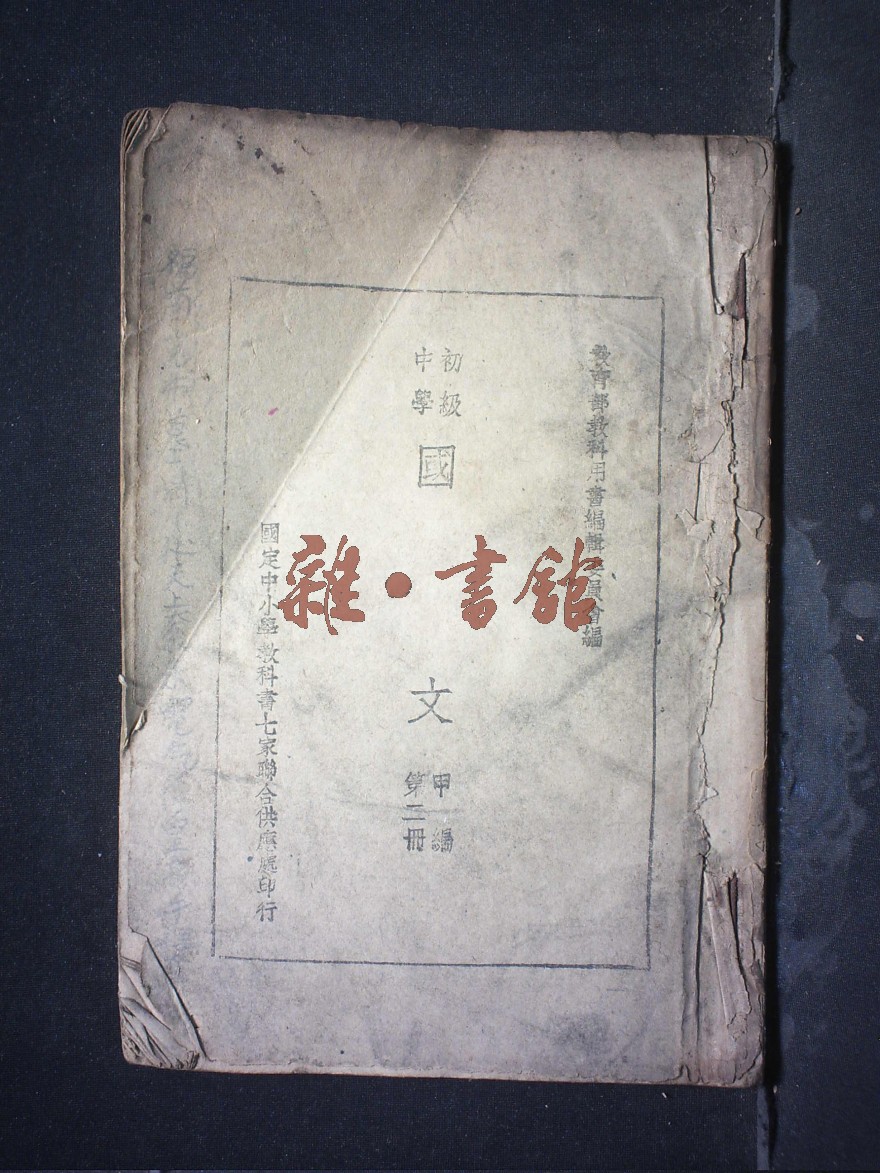 教育部教科用書編輯委員會編
初級
中學
國文
甲編
第二冊
國定中小學教科書七家聯合供應處印行
雜·書館